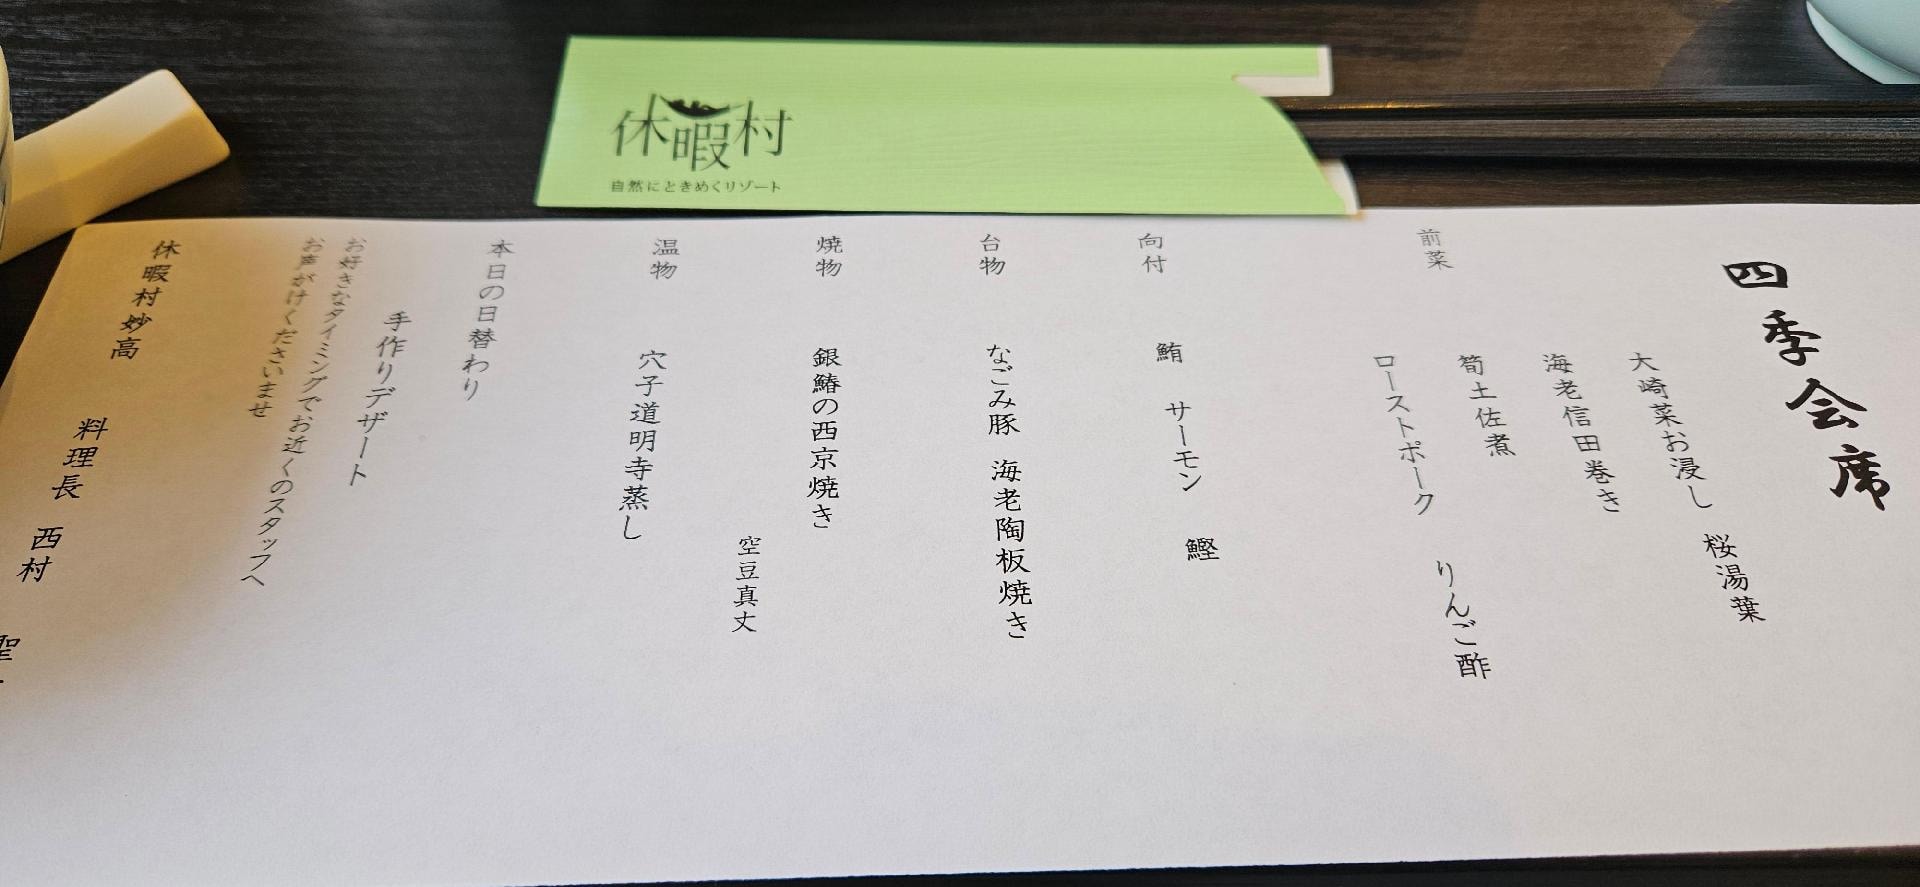 休暇村
自然にときめくリゾート
四季会席
前菜
大崎菜お浸し 桜湯葉
海老信田巻き
筍土佐煮
ローストポーク りんご酢
向付
鮪 サーモン 鰹
台物
なごみ豚 海老陶板焼き
焼物
銀鰆の西京焼き
空豆真丈
温物
穴子道明寺蒸し
本日の日替わり
手作りデザート
お好きなタイミングでお近くのスタッフへ
お声がけくださいませ
休暇村妙高
料理長 西村 聖